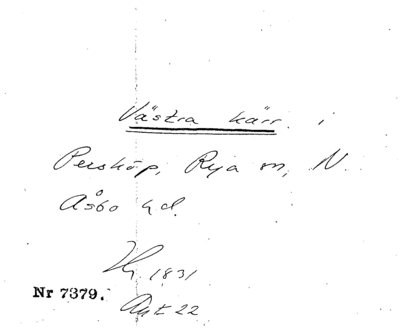 Västra kärr i
Perstorp, Rya m, N.
Åsbo hd.
1831
Nr 7379.
Akt 22